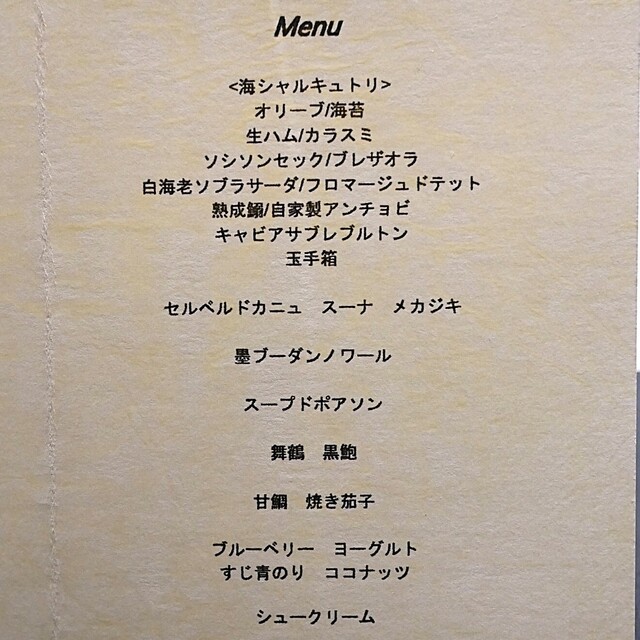 Menu
<海シャルキュトリ>
オリーブ/海苔
生ハム/カラスミ
ソシソンセック/ブレザオラ
白海老ソブラサーダ/フロマージュドテット
熟成鰯/自家製アンチョビ
キャビアサブレブルトン
玉手箱
セルベルドカニュ　スーナ　メカジキ
墨ブーダンノワール
スープドポアソン
舞鶴　黒鮑
甘鯛　焼き茄子
ブルーベリー　ヨーグルト
すじ青のり　ココナッツ
シュークリーム